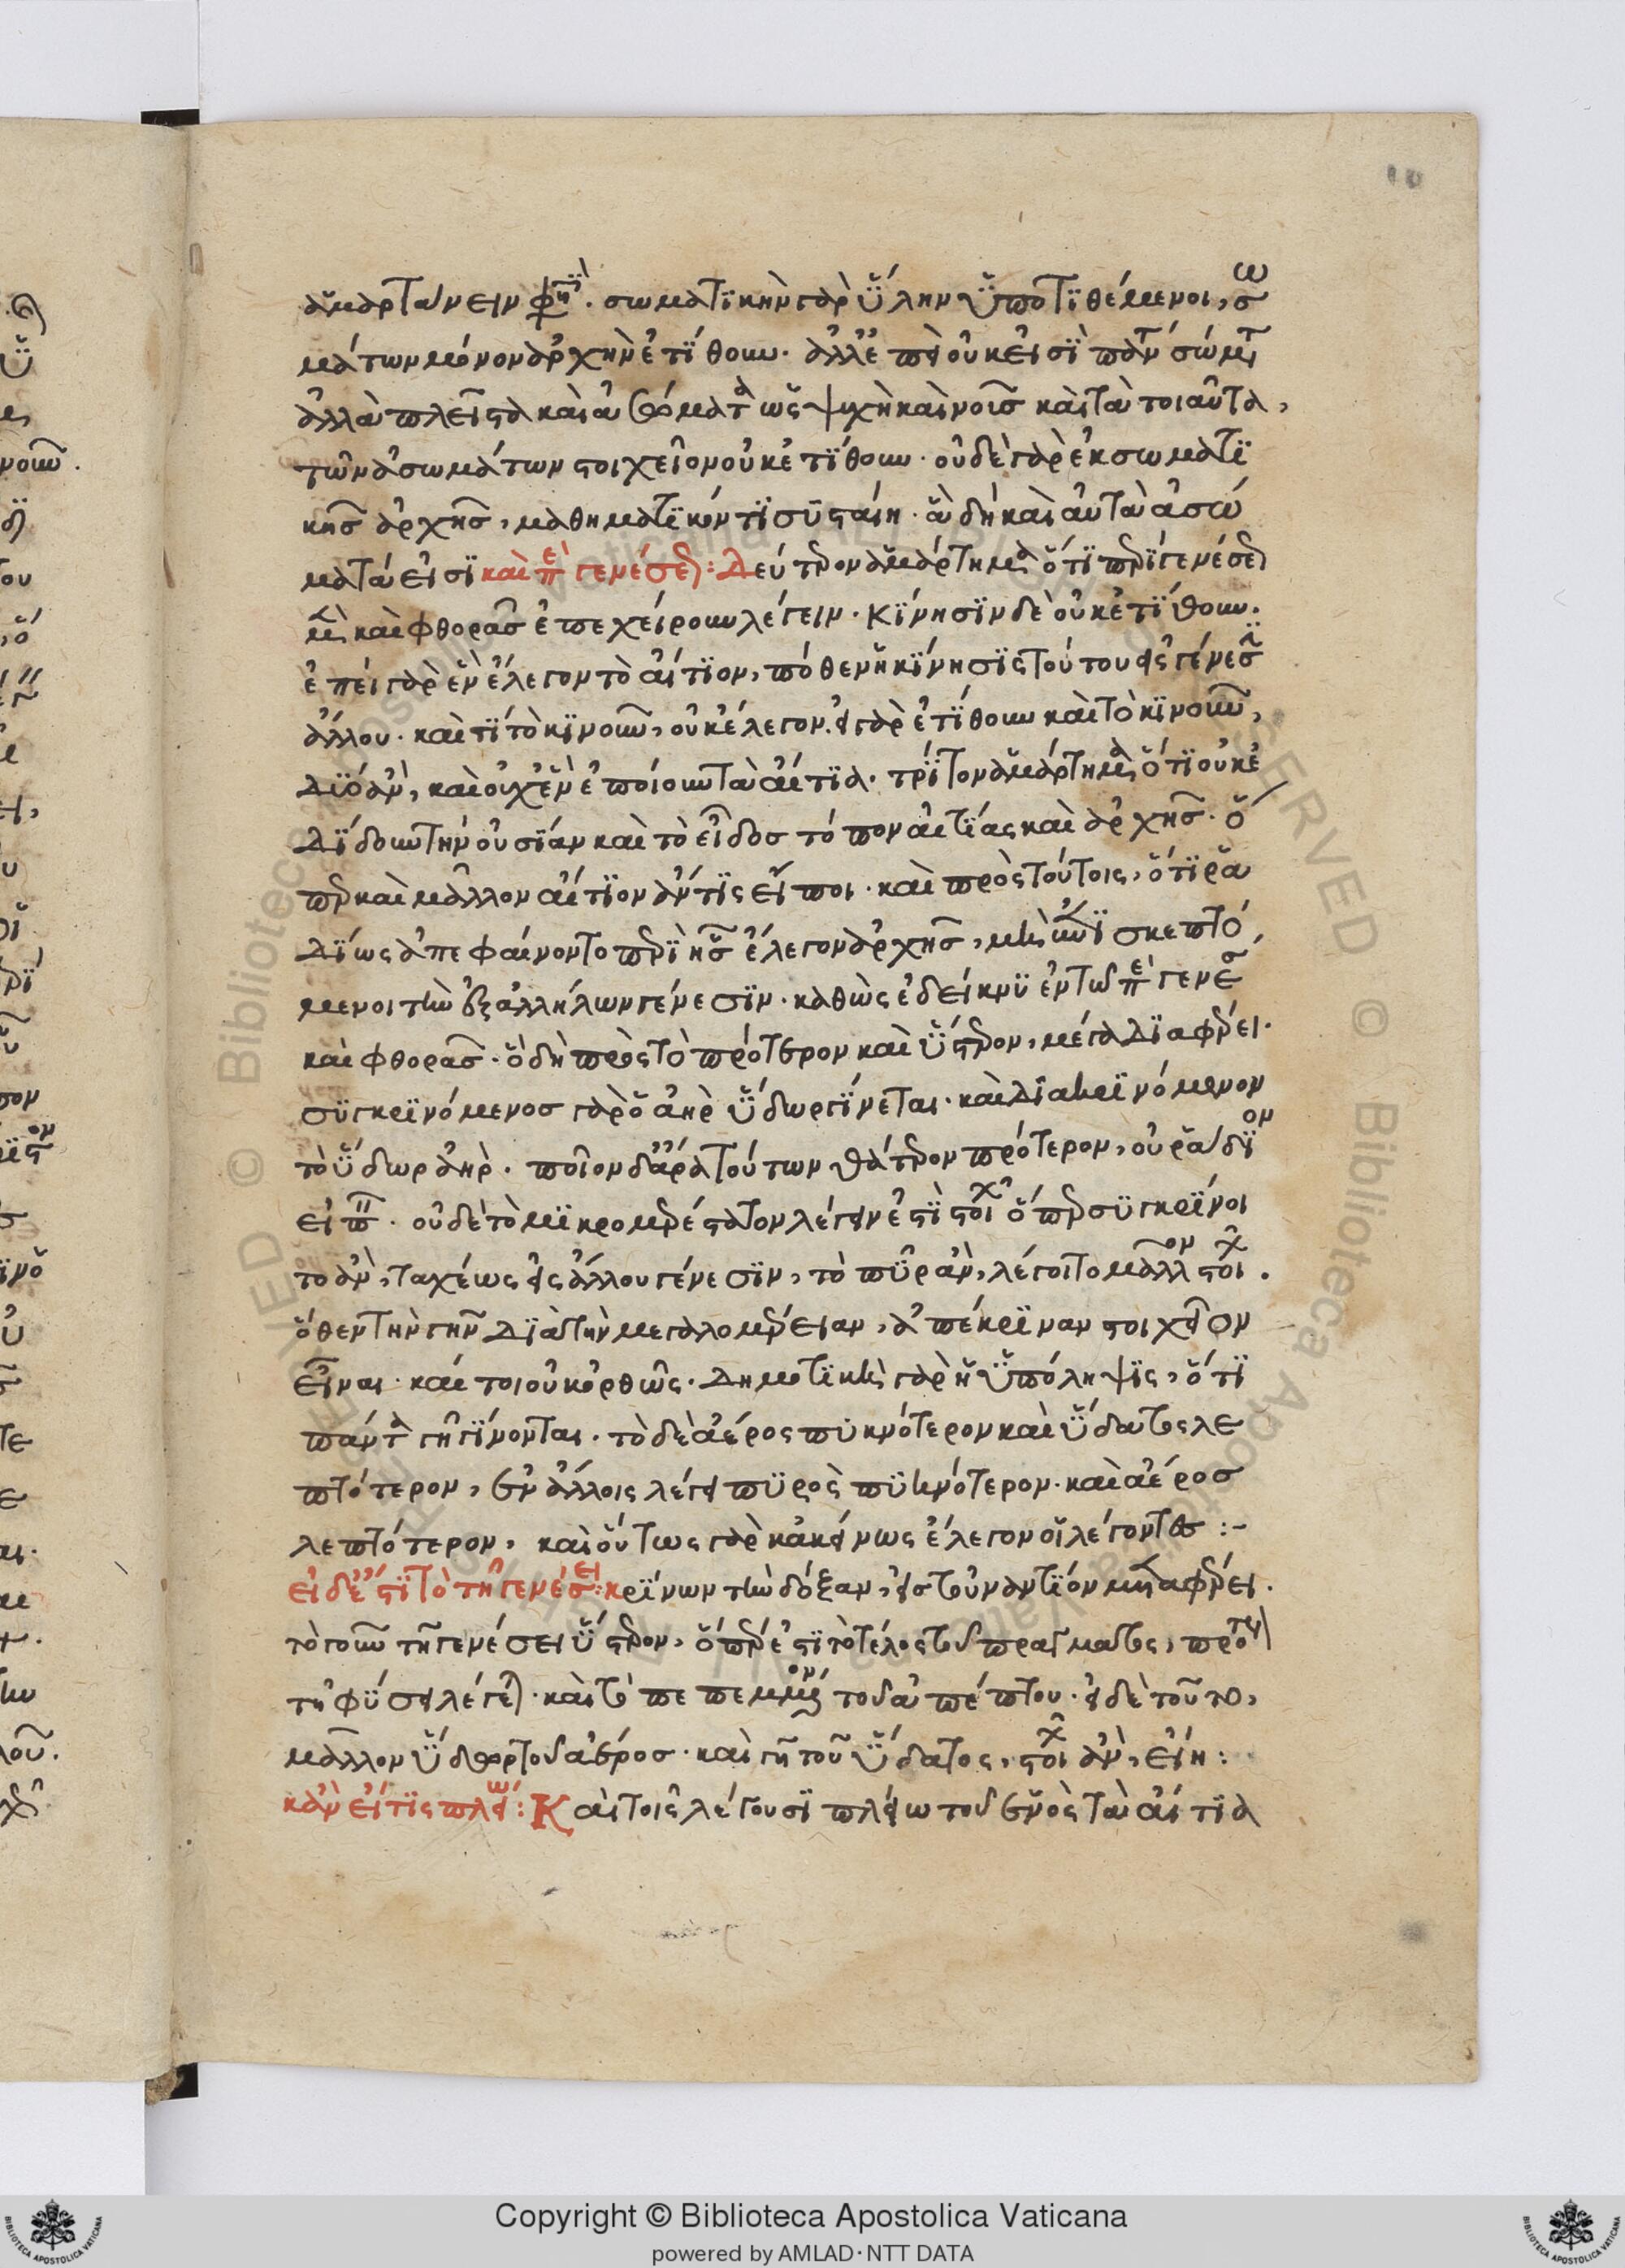 ἁμαρτάνειν φησὶ. σωματικὴν γὰρ ὕλην ὑποτιθέμενοι, σω
μάτων μόνον ἀρχὴν ἐτίθουν. ἀλλ' ἐπεὶ οὐκ εἰσὶ πάντα σώματα
ἀλλὰ πλεῖστα καὶ ἀσώματα ὡς ψυχὴ καὶ νοῦς καὶ τὰ τοιαῦτα,
τῶν ἀσωμάτων στοιχεῖον οὐκ ἐτίθουν. οὐδὲ γὰρ ἐκ σωματι
κῆς ἀρχῆς, μαθηματικόν τι συσταίη. ἃ δὴ καὶ αὐτὰ ἀσώ
ματά εἰσι καὶ περὶ γενέσεως: Δεύτερον ἁμάρτημα ὅτι περὶ γενέσεως
μὲν καὶ φθορᾶς ἐπεχείρουν λέγειν. κίνησιν δὲ οὐκ ἐτίθουν.
ἐπεὶ γὰρ ἓν ἔλεγον τὸ αἴτιον, πόθεν ἡ κίνησις τούτου εἰς γένεσιν
ἄλλου. καὶ τί τὸ κινοῦν, οὐκ ἔλεγον. εἰ γὰρ ἐτίθουν καὶ τὸ κινοῦν,
δύο ἂν, καὶ οὐχ ἓν ἐποίουν τὰ αἴτια. τρίτον ἁμάρτημα, ὅτι οὐκ ἐ
δίδουν τὴν οὐσίαν καὶ τὸ εἶδος τόπον αἰτίας καὶ ἀρχῆς. ὅ
περ καὶ μᾶλλον αἴτιον ἄν τις εἴποι. καὶ πρὸς τούτοις, ὅτι ῥᾳ
δίως ἀπεφαίνοντο περὶ ἧς ἔλεγον ἀρχῆς, μὴ σκεπτό
μενοι τὴν ἐξ ἀλλήλων γένεσιν. καθὼς ἐδείκνυ ἐν τῷ περὶ γενέσεως
καὶ φθορᾶς. ὃ δὴ πρὸς τὸ πρότερον καὶ ὕστερον, μέγα διαφέρει.
συγκρινόμενος γὰρ ὁ ἀὴρ ὕδωρ γίνεται. καὶ διακρινόμενον
τὸ ὕδωρ ἀήρ. ποῖον δ' ἄρα τούτων θάτερον πρότερον, οὐ ῥᾴδιον
εἰπεῖν. οὐδὲ τὸ μικρομερέστατον λέγειν ἐστὶ στοιχεῖον ὅπερ συγκρίνοι
το ἂν, ταχέως εἰς ἄλλου γένεσιν, τὸ πῦρ ἂν, λέγοιτο μᾶλλον στοιχεῖον.
ὅθεν τὴν γῆν διὰ τὴν μεγαλομέρειαν, ἀπέκριναν στοιχεῖον
εἶναι. καίτοι οὐκ ὀρθῶς. δημοτικὴ γὰρ ἡ ὑπόληψις, ὅτι
πάντα γῆ γίνονται. τὸ δὲ ἀέρος πυκνότερον καὶ ὕδατος λε
πτότερον, ἐν ἄλλοις λέγει πυρὸς πυκνότερον. καὶ ἀέρος
λεπτότερον, καὶ οὕτως γὰρ κἀκείνως ἔλεγον οἱ λέγοντες :-
εἰ δέ ἐστι τὸ τῇ γενέσει: κρίνων τὴν δόξαν, εἰς τοὐναντίον μεταφέρει.
τὸ γοῦν τῇ γενέσει ὕστερον, ὅπερ ἐστὶ τὸ τέλος τοῦ πράγματος, πρότερον
τῇ φύσει λέγεται. καὶ τὸ πεπεμμένον τοῦ ἀπέπτου. εἰ δὲ τοῦτο,
μᾶλλον ὕδωρ τοῦ ἀέρος. καὶ γῆ τοῦ ὕδατος, στοιχεῖον ἂν, εἴη :
κἂν εἴ τις πλείω: Καὶ τοῖς λέγουσι πλείω τοῦ ἑνὸς τὰ αἴτια
Copyright © Biblioteca Apostolica Vaticana
powered by AMLAD·NTT DATA